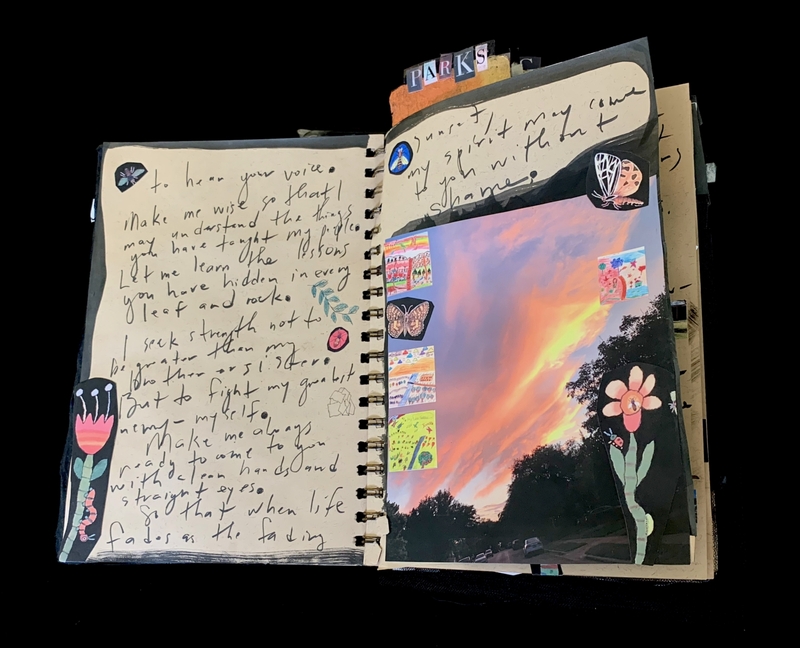 to hear your voice.
Make me wise so that I
may understand the things
you have taught my people.
Let me learn the lessons
you have hidden in every
leaf and rock.
I seek strength not to
be greater than my
brother or sister.
But to fight my greatest
enemy - myself.
Make me always
ready to come to you
with clean hands and
straight eyes.
So that when life
fades as the fading
PARKS
Sunset,
my spirit may come
to you without
shame.